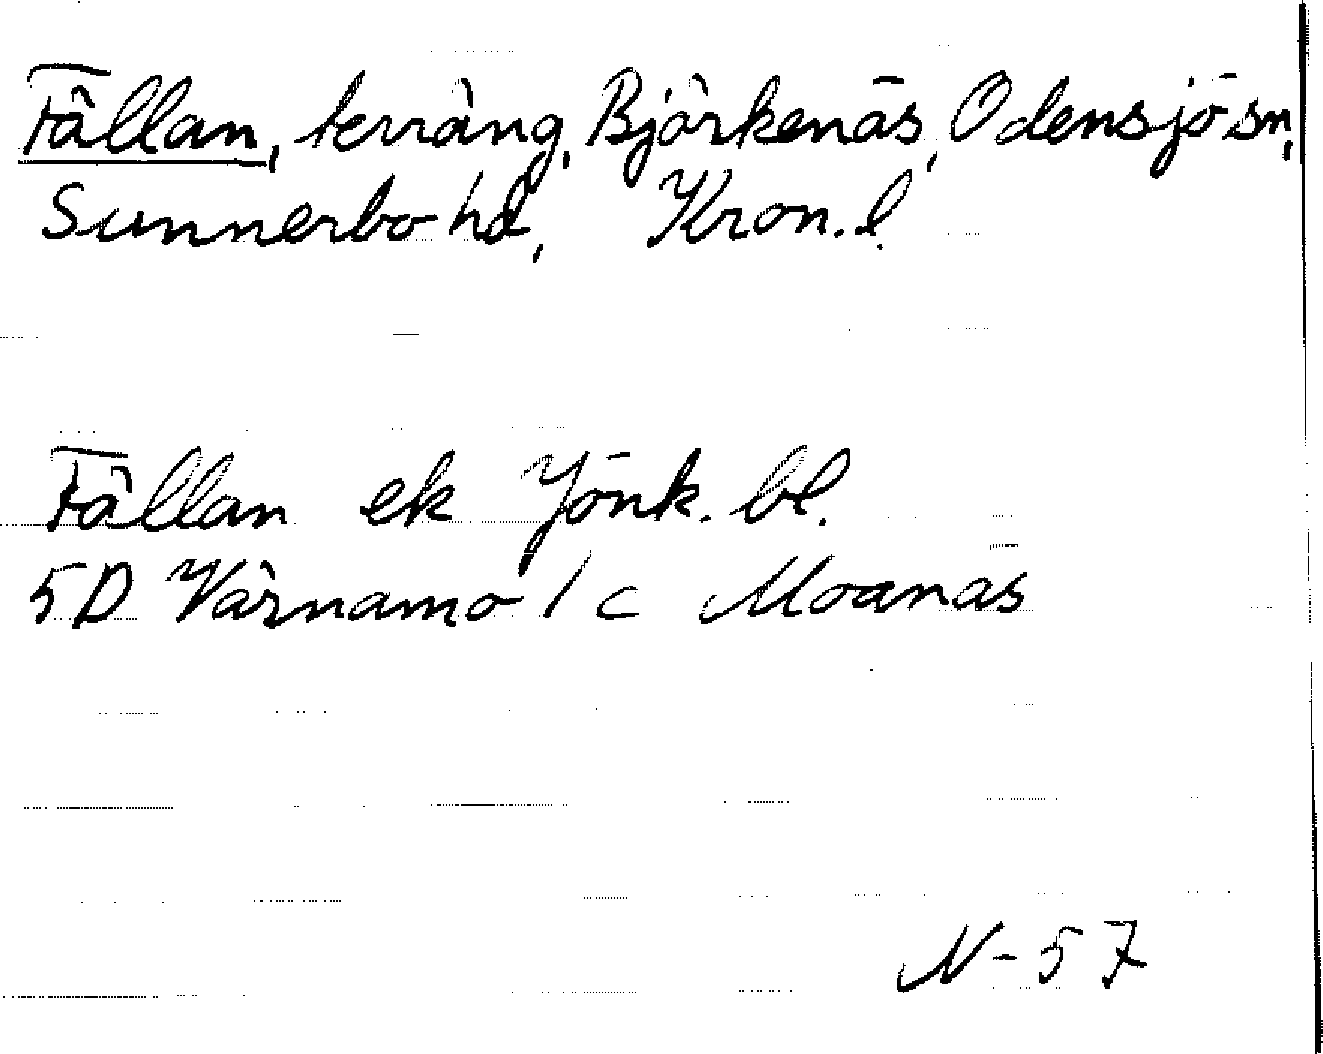 Fällan, terräng, Björkenäs, Odensjö sn,
Sunnerbo hd, Kron. l.
Fällan ek Jönk. bl.
5D Värnamo 1 c Moanäs
N-57